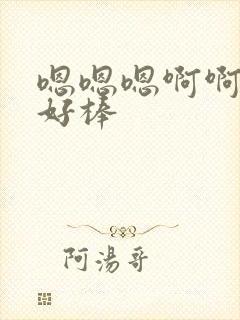 嗯嗯嗯啊啊
好棒
阿湯哥